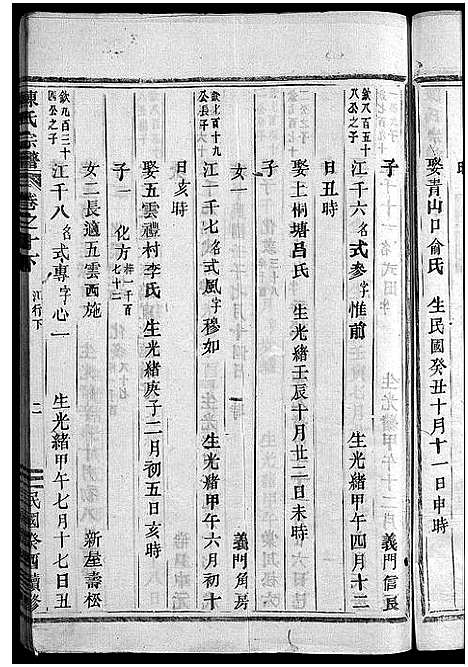 娶青山口俞氏　生民國癸丑十月十一日申時
欽八百五十
八公之子
江千六名式參字惟前　生光緒甲午四月十二　義門信房
日丑時
娶上桐塘呂氏　生光緒壬辰十月廿二日未時
子
女一
欽七百十九
江千七名式風字穆如　生光緒甲午六月初十　義門角房
日亥時
娶五雲禮村李氏　生光緒庚子二月初五日亥時
子一　化方 祥一千百七十二
女二長適五雲西施　新屋壽松
欽九百三十
四公之子
江千八名式專字心一　生光緒甲午七月十七日丑
陳氏宗譜　卷之十六　江行下　二　民國癸酉續修